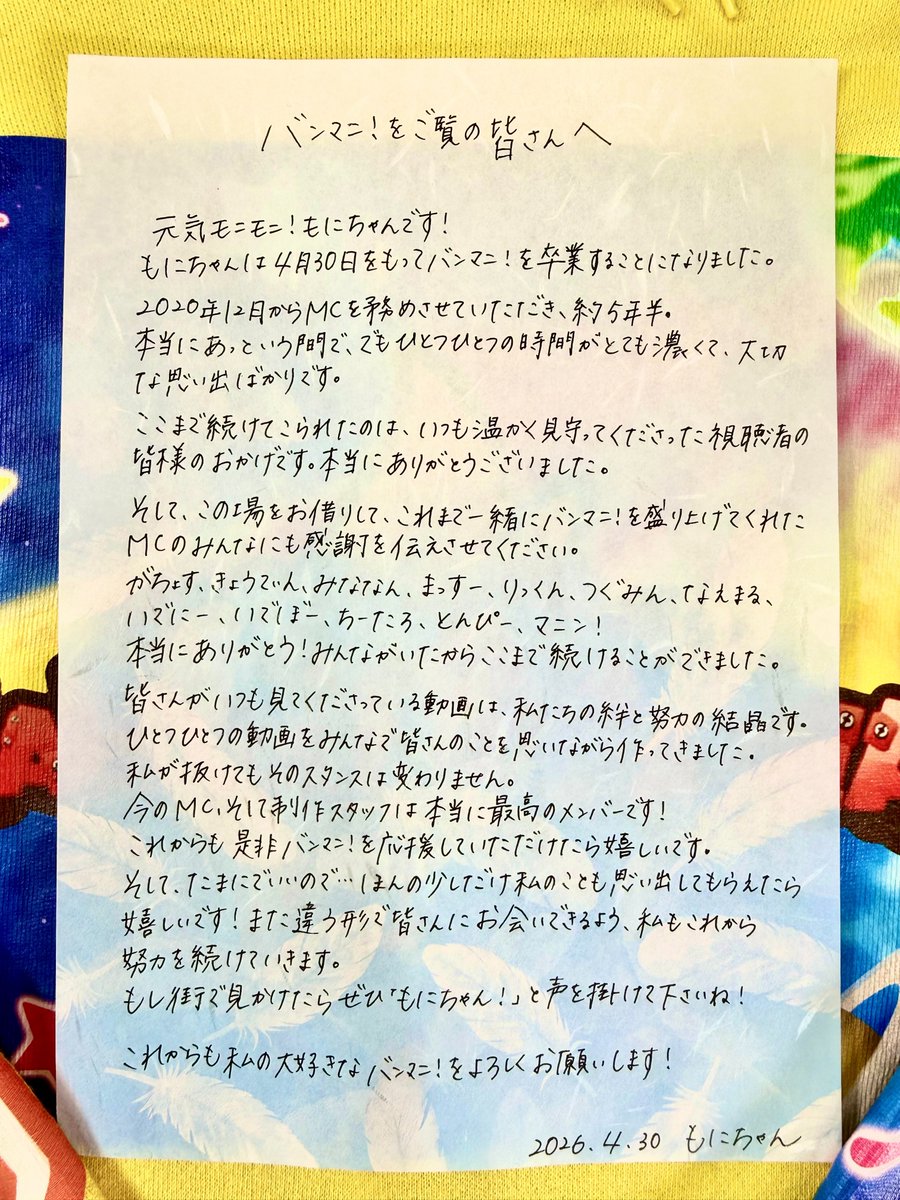 バンマニ!をご覧の皆さんへ
元気モニモニ!もにちゃんです!
もにちゃんは4月30日をもってバンマニ!を卒業することになりました。
2020年12月からMCを務めさせていただき、約5年半。
本当にあっという間で、でもひとつひとつの時間がとても濃くて、大切
な思い出ばかりです。
ここまで続けてこられたのは、いつも温かく見守ってくださった視聴者の
皆様のおかげです。本当にありがとうございました。
そして、この場をお借りして、これまで一緒にバンマニ!を盛り上げてくれた
MCのみんなにも感謝を伝えさせてください。
がちょす、きょうでぃん、みななん、まっすー、りっくん、つぐみん、なえまる、
いでにー、いでぼー、ちーたろ、とんぴー、マニン!
本当にありがとう!みんながいたからここまで続けることができました。
皆さんがいつも見てくださっている動画は、私たちの絆と努力の結晶です。
ひとつひとつの動画をみんなで皆さんのことを思いながら作ってきました。
私が抜けてもそのスタンスは変わりません。
今のMC、そして制作スタッフは本当に最高のメンバーです!
これからも是非バンマニ!を応援していただけたら嬉しいです。
そして、たまにでいいので…ほんの少しだけ私のことも思い出してもらえたら
嬉しいです!また違う形で皆さんにお会いできるよう、私もこれから
努力を続けていきます。
もし街で見かけたらぜひ「もにちゃん!」と声を掛けて下さいね!
これからも私の大好きなバンマニ!をよろしくお願いします!
2026.4.30 もにちゃん